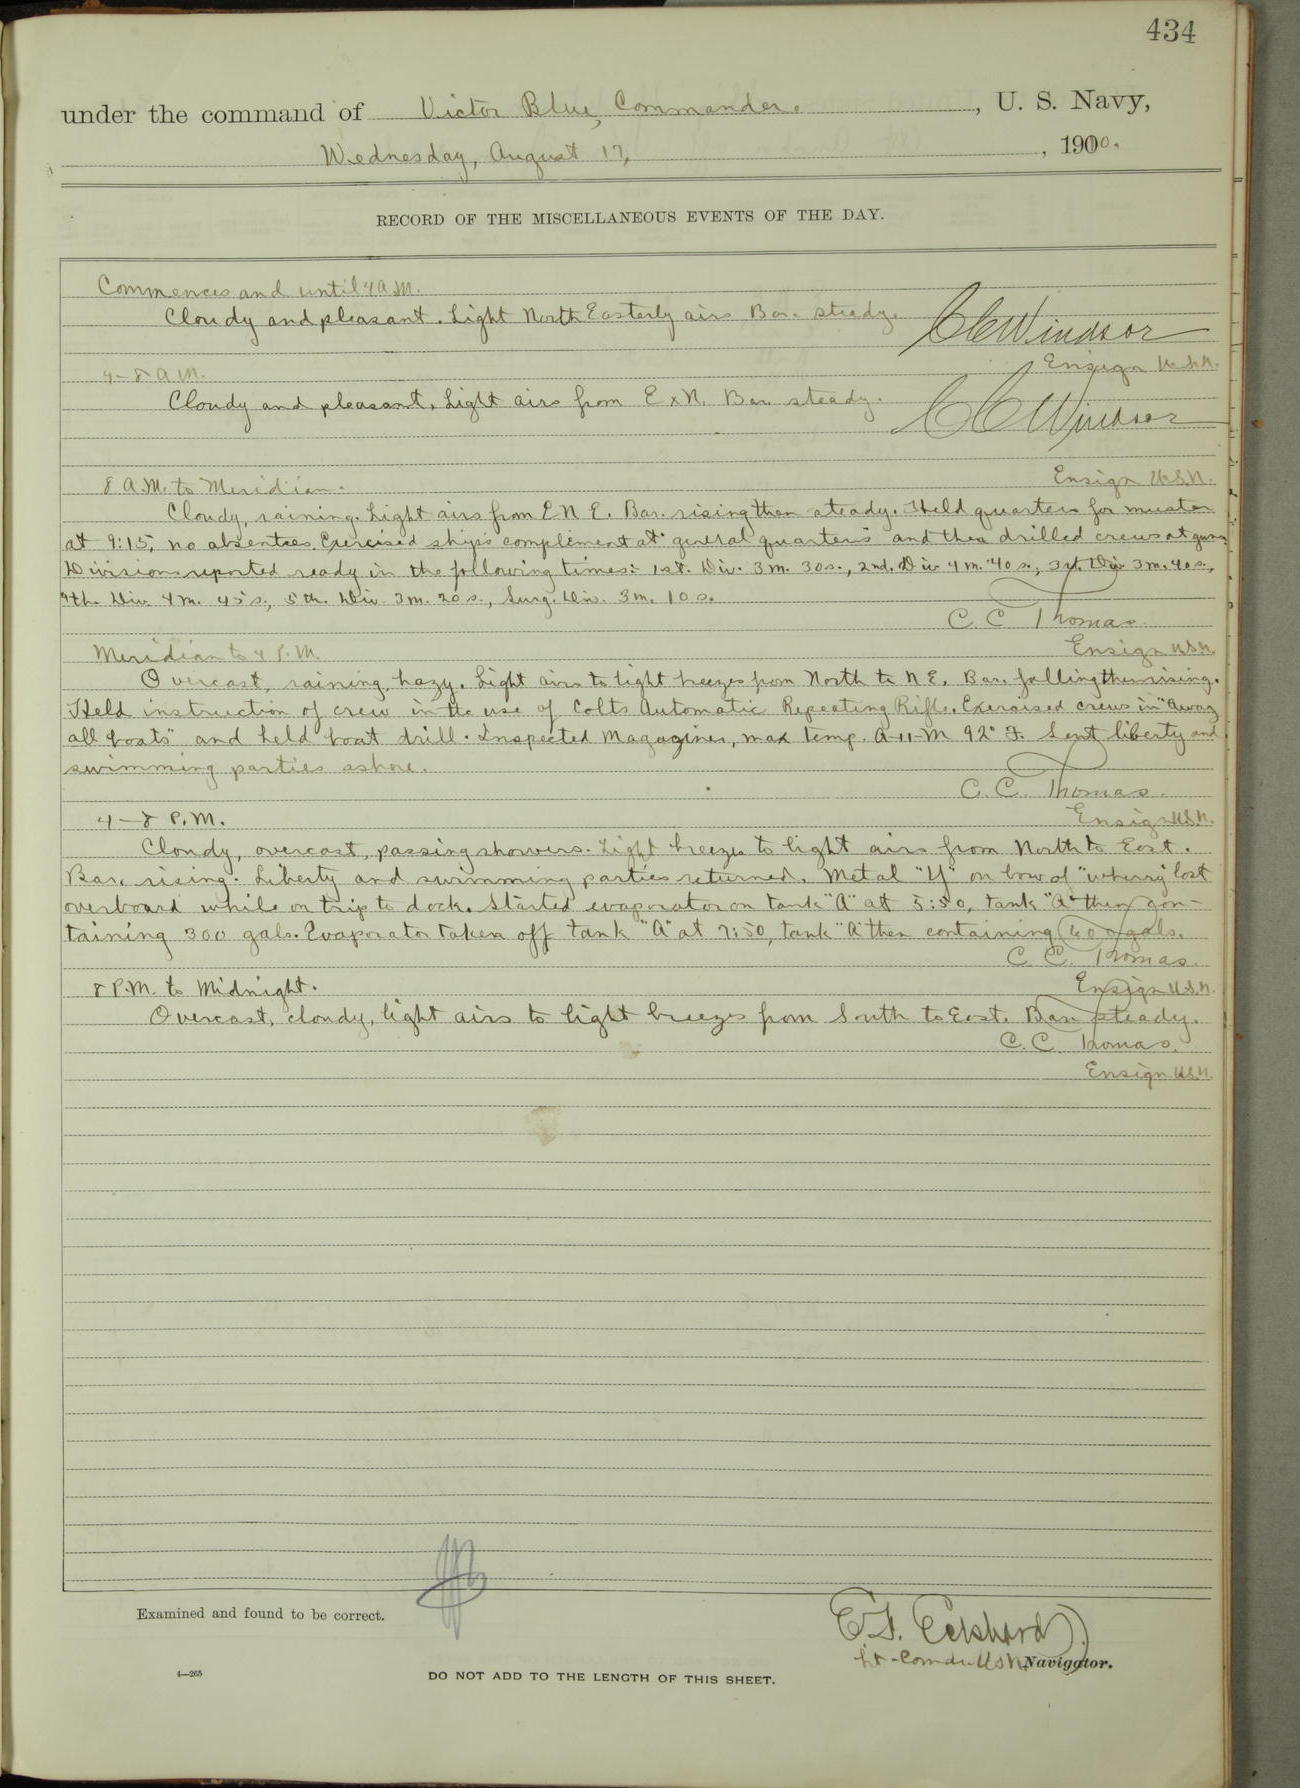 434
under the command of Victor Blue, Commander. , U. S. Navy,
Wednesday, August 17, , 1910.
RECORD OF THE MISCELLANEOUS EVENTS OF THE DAY.
Commences and until 4 A.M.
Cloudy and pleasant. Light North Easterly airs Bar. steady.
C C Windsor
Ensign U.S.N.
4–8 A.M.
Cloudy and pleasant. Light airs from E x N. Bar. steady.
C C Windsor
Ensign U.S.N.
8 A.M. to Meridian.
Cloudy, raining. Light airs from E N E. Bar. rising then steady. Held quarters for muster
at 9:15, no absentees. Exercised ship's complement at "general quarters" and then drilled crews at guns
Divisions reported ready in the following times:- 1st. Div. 3 m. 30 s., 2nd. Div 4 m. 40 s., 3rd. Div 3 m. 40 s.,
4th. Div. 4 m. 45 s., 5th. Div. 3 m. 20 s., Surg. Div. 3 m. 10 s.
C. C. Thomas
Ensign U.S.N.
Meridian to 4 P.M.
Overcast, raining, hazy. Light airs to light breezes from North to N E. Bar. falling then rising.
Held instruction of crew in the use of Colts Automatic Repeating Rifle. Exercised crews in "away
all boats" and held boat drill. Inspected Magazines, max temp. A-11-M 92° F. Sent liberty and
swimming parties ashore.
C. C. Thomas.
Ensign U.S.N.
4–8 P.M.
Cloudy, overcast, passing showers. Light breezes to light airs from North to East.
Bar. rising. Liberty and swimming parties returned. Metal "Y" on bow of "wherry" lost
overboard while on trip to dock. Started evaporator on tank "A" at 5:50, tank "A" then con-
taining 300 gals. Evaporator taken off tank "A" at 7:50, tank "A" then containing 600 gals.
C. C. Thomas.
Ensign U.S.N.
8 P.M. to Midnight.
Overcast, cloudy, light airs to light breezes from South to East. Bar. steady.
C. C. Thomas.
Ensign U.S.N.
Examined and found to be correct.
E. F. Eckhardt
Lt-Comdr. U.S.N. Navigator.
4—265
DO NOT ADD TO THE LENGTH OF THIS SHEET.